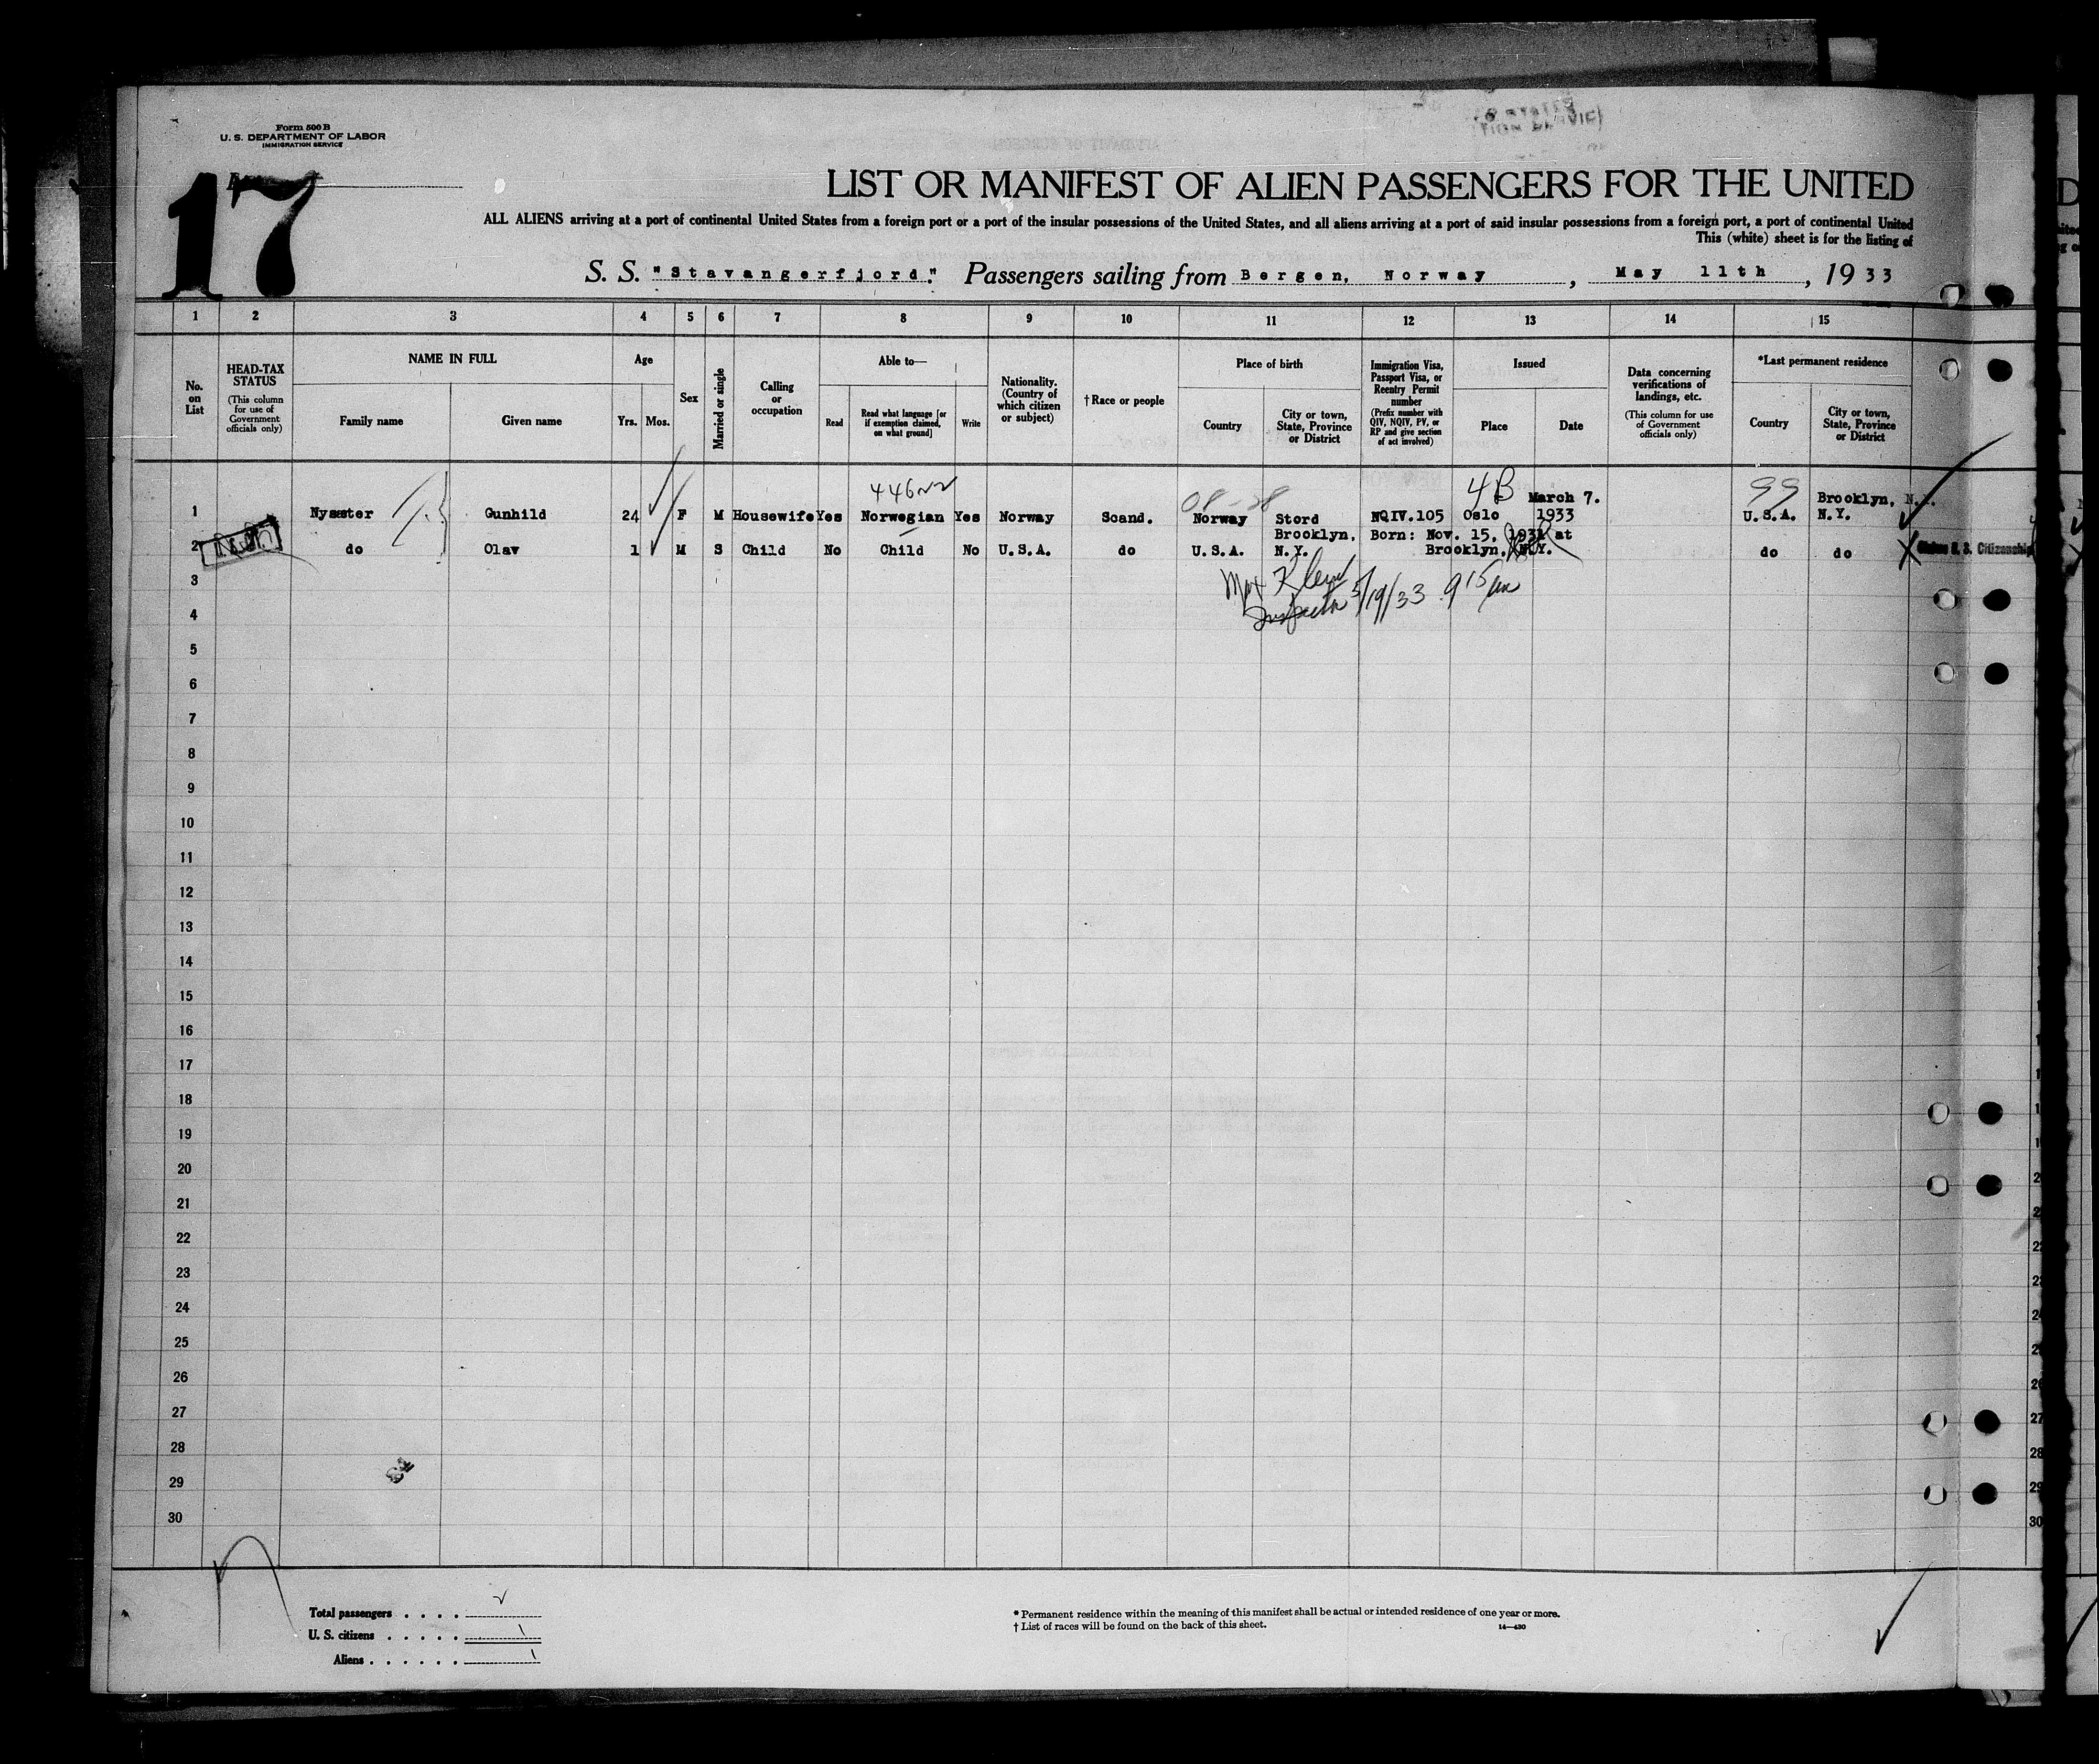 Form 500 B
U. S. DEPARTMENT OF LABOR
IMMIGRATION SERVICE
17
LIST OR MANIFEST OF ALIEN PASSENGERS FOR THE UNITED
ALL ALIENS arriving at a port of continental United States from a foreign port or a port of the insular possessions of the United States, and all aliens arriving at a port of said insular possessions from a foreign port, a port of continental United
This (white) sheet is for the listing of
S. S. "Stavangerfjord". Passengers sailing from Bergen, Norway, May 11th, 1933
1 2 3 4 5 6 7 8 9 10 11 12 13 14 15
No. on List
HEAD-TAX STATUS (This column for use of Government officials only)
NAME IN FULL
Family name
Given name
Age
Yrs. Mos.
Sex
Married or single
Calling or occupation
Able to—
Read
Read what language [or if exemption claimed, on what ground]
Write
Nationality. (Country of which citizen or subject)
†Race or people
Place of birth
Country
City or town, State, Province or District
Immigration Visa, Passport Visa, or Reentry Permit number (Prefix number with QIV, NQIV, PV, or RP and give section of act involved)
Issued
Place
Date
Data concerning verifications of landings, etc. (This column for use of Government officials only)
*Last permanent residence
Country
City or town, State, Province or District
4B March 7. 99 Brooklyn, N.Y.
1 Nysæter Gunhild 24 F M Housewife Yes Norwegian Yes Norway Scand. Norway Stord NQIV.105 Oslo 1933 U.S.A. N.Y.
Brooklyn, Born: Nov. 15, 1931 at
2 do Olav 1 M S Child No Child No U.S.A. do U.S.A. N.Y. Brooklyn, N.Y. do do U. S. Citizenship
3
Inspector 5/19/33 9 15 am
4
5
6
7
8
9
10
11
12
13
14
15
16
17
18
19
20
21
22
23
24
25
26
27
28
29
30
Total passengers . . . . 2
U. S. citizens . . . . . 1
Aliens . . . . . . 1
* Permanent residence within the meaning of this manifest shall be actual or intended residence of one year or more.
† List of races will be found on the back of this sheet.
14—430